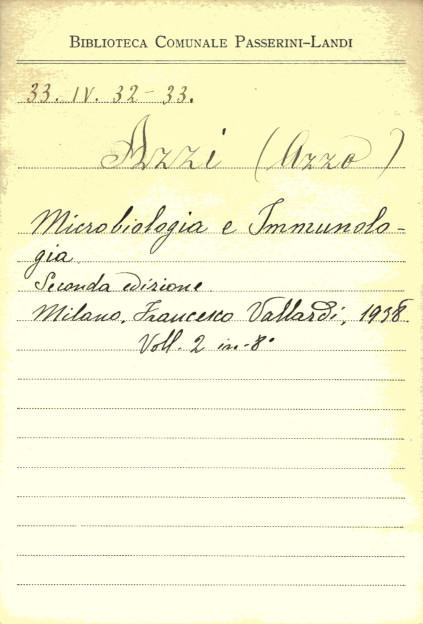 BIBLIOTECA COMUNALE PASSERINI-LANDI
33. IV. 32-33.
Azzi (Azzo)
Microbiologia e Immunolo-
gia
Seconda edizione
Milano, Francesco Vallardi, 1938
Voll. 2 in-8°